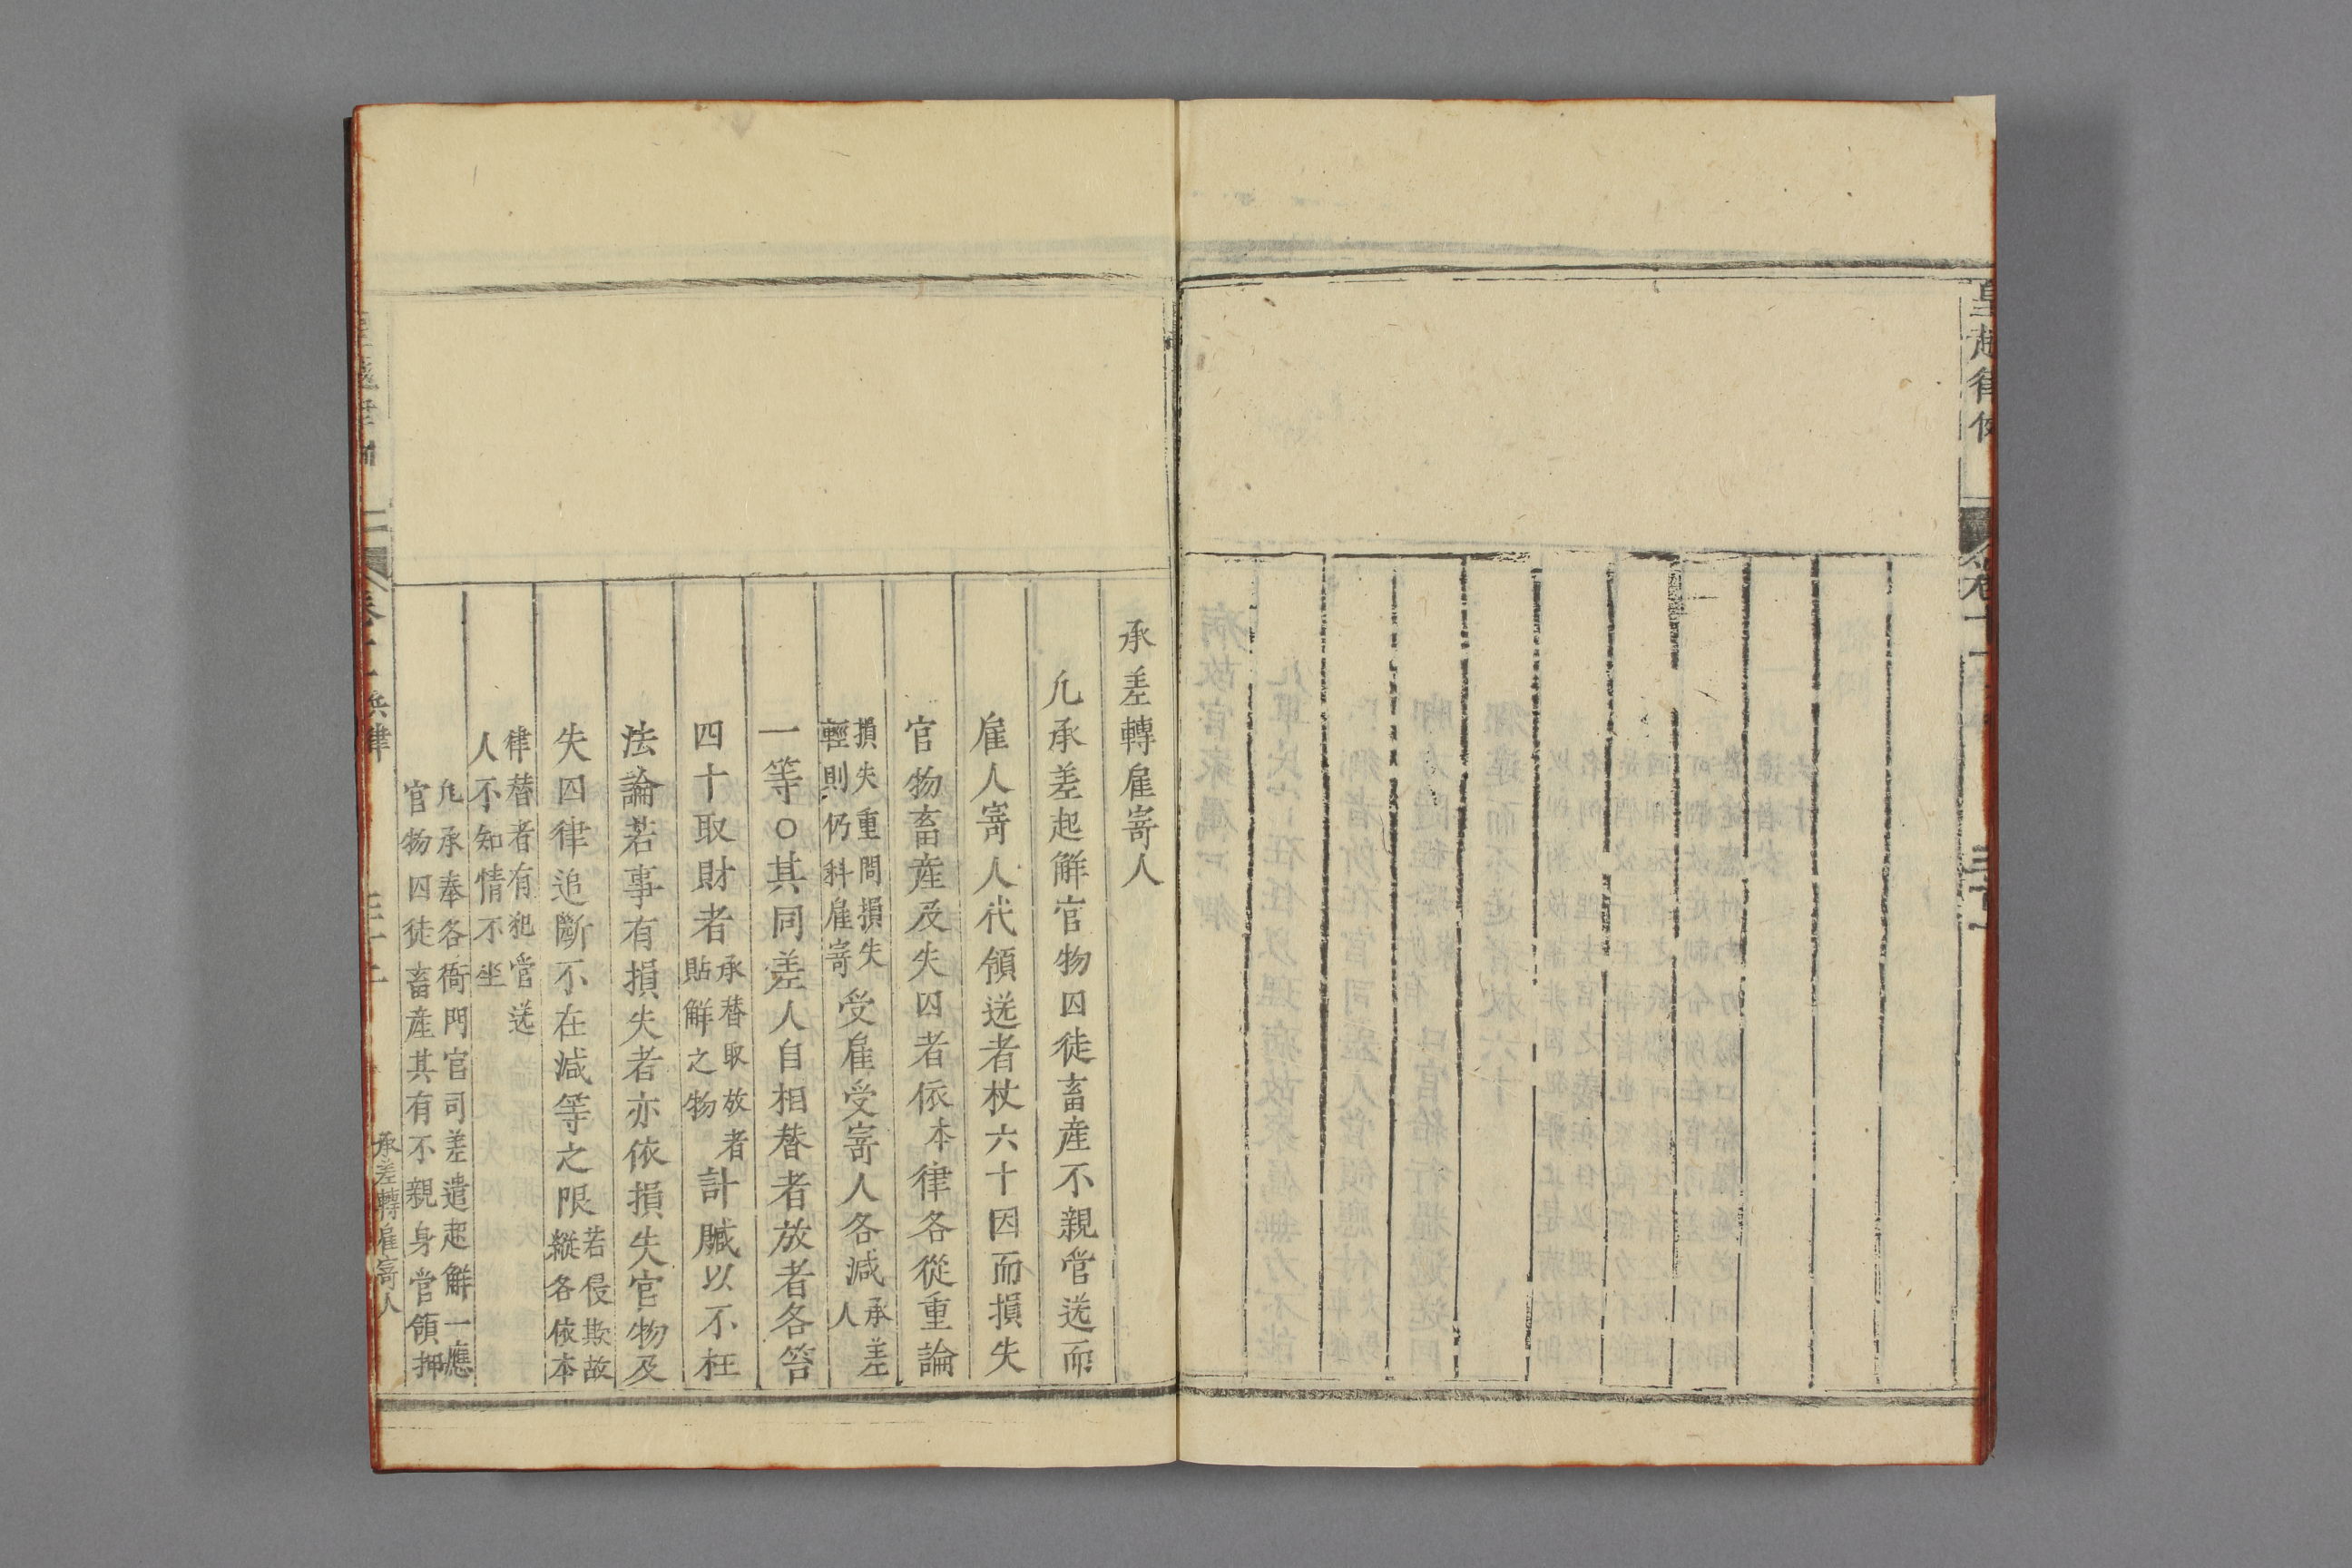 皇越律例
卷十一
承差轉雇寄人
凢承差起解官物囚徒畜產不親管送而
雇人寄人代領送者杖六十因而損失
官物畜產及失囚者依本律各從重論
損失重問損失
輕則仍科雇寄
受雇受寄人各減
承差
人
一等○其同差人自相替者放者各笞
四十取財者
承替取放者
貼解之物
計贓以不枉
法論若事有損失者亦依損失官物及
失囚律追斷不在減等之限
若侵欺故
縱各依本
律替者有犯管送
人不知情不坐
凢承奉各衙門官司差遣起解一應
官物囚徒畜產其有不親身管領押
卷十一
兵律
承差轉雇寄人